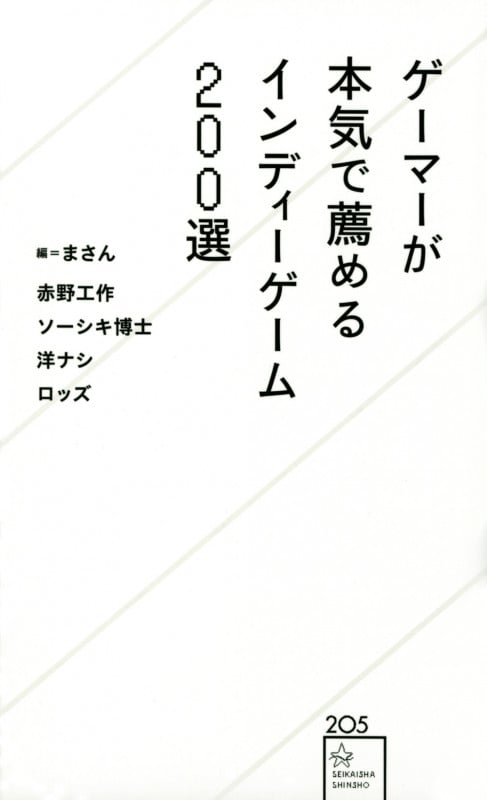 ゲーマーが
本気で薦める
インディーゲーム
200選
編=まさん
赤野工作
ソーシキ博士
洋ナシ
ロッズ
205
SEIKAISHA
SHINSHO